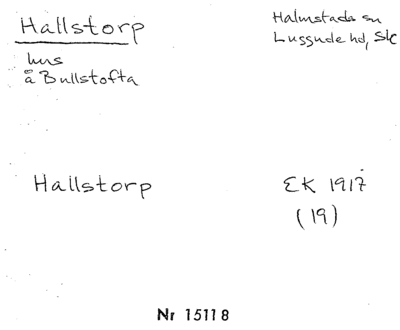 Hallstorp
Halmstads sn
Luggude hd, Sk
hus
å Bullstofta
Hallstorp
EK 1917
(19)
Nr 15118